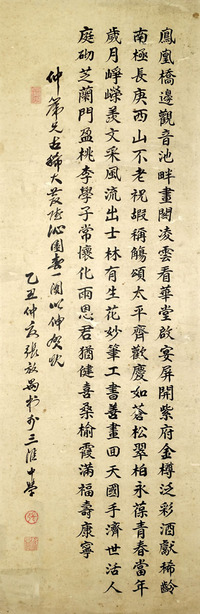 鳳凰橋邊觀音池畔畫閣凌雲看華堂啟宴屏開紫府金樽泛彩酒獻稀齡
南極長庚西山不老祝嘏稱觴頌太平齊歡慶如蒼松翠柏永葆青春當年
歲月崢嶸羨文采風流出士林有生花妙筆工書善畫回天國手濟世活人
庭砌芝蘭門盈桃李學子常懷化雨恩君猶健喜桑榆霞滿福壽康寧
仲篪兄古稀大慶隆沁園春一闋以伸賀忱
乙丑仲友張放為於三淮中學